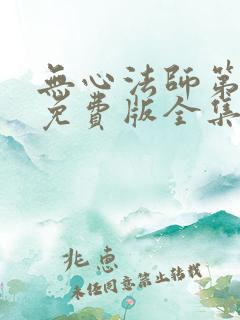 無心法師第
免費版全集
兆惠
未經同意禁止轉載